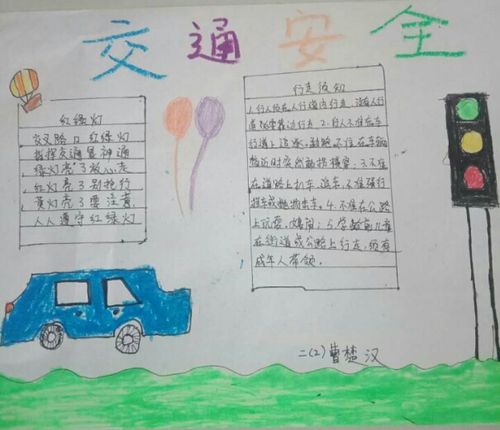 交通安全
红绿灯
交叉路口红绿灯
指挥交通显神通
绿灯亮了放心走
红灯亮了别抢行
黄灯亮了要注意
人人遵守红绿灯
行走
1.行人须在人行道内行走,没有人行
道 靠边行走.2.
行道上追逐、 不准在车辆
临近时突然 3.不准
在道路上扒车、追车,不准强行
拦车或抛 4.不准在公路
上玩耍、嬉闹;5.学龄前儿童
在街道或公路上行走,须有
成年人带领。
二(2)曹楚汉